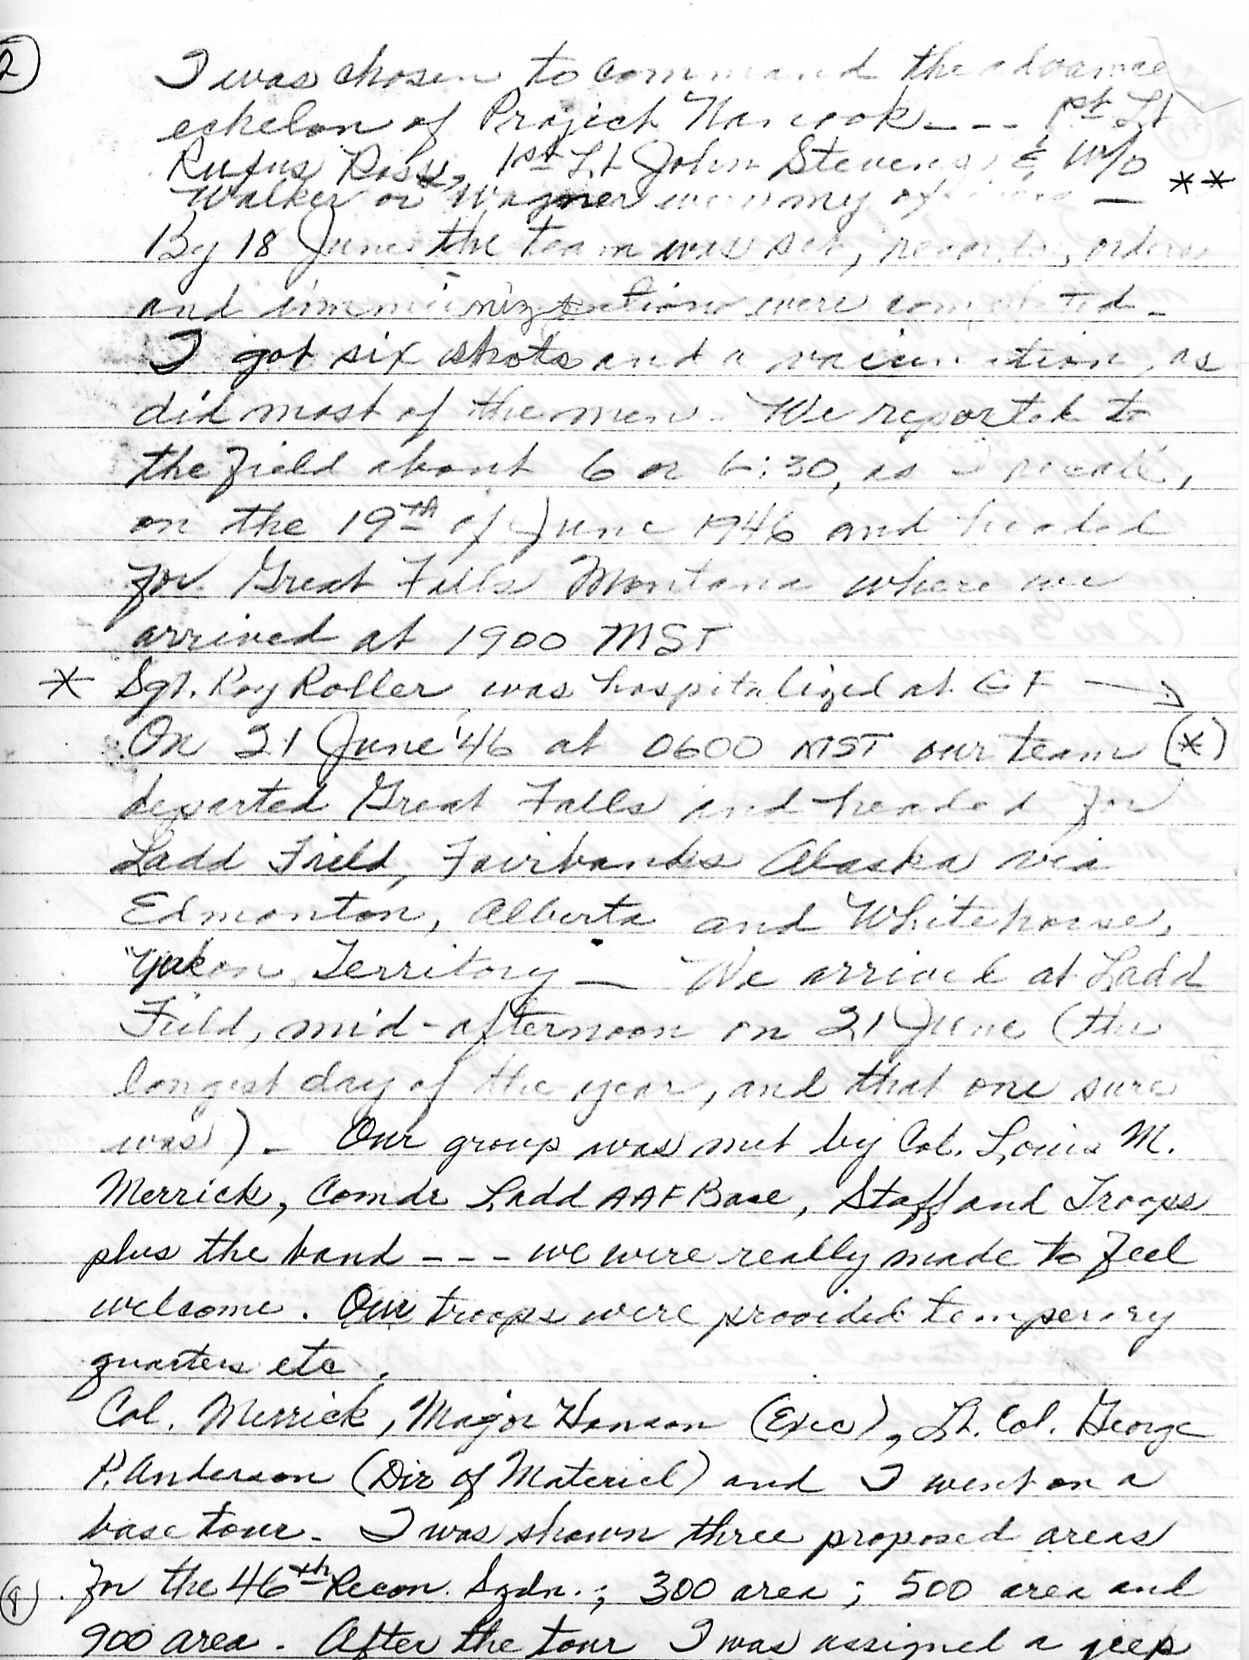 2
I was chosen to command the advance
echelon of Project Nanook --- 1st Lt
Rufus Ross, 1st Lt John Stevens & W/O **
Walker or Wagner were my
By 18 June the team was set, records, orders
and immunizations were completed.
I got six shots and a vaccination, as
did most of the men. We reported to
the field about 6 or 6:30, as I recall,
on the 19TH of June 1946 and headed
for Great Falls Montana where we
arrived at 1900 MST
* Sgt. Roy Roller was hospitalized at GF →
On 21 June '46 at 0600 MST our team (*)
departed Great Falls and headed for
Ladd Field, Fairbanks Alaska via
Edmonton, Alberta and Whitehorse,
Yukon Territory — We arrived at Ladd
Field, mid-afternoon on 21 June (the
longest day of the year, and that one sure
was). Our group was met by Col. Louis M.
Merrick, Comdr Ladd AAF Base, Staff and Troops
plus the band --- we were really made to feel
welcome. Our troops were provided temperary
quarters etc.
Col. Merrick, Major Hanson (Exec), Lt. Col. George
P. Anderson (Dir of Materiel) and I went on a
base tour. I was shown three proposed areas
for the 46th Recon. Sqdn.; 300 area; 500 area and
900 area. After the tour I was assigned a jeep